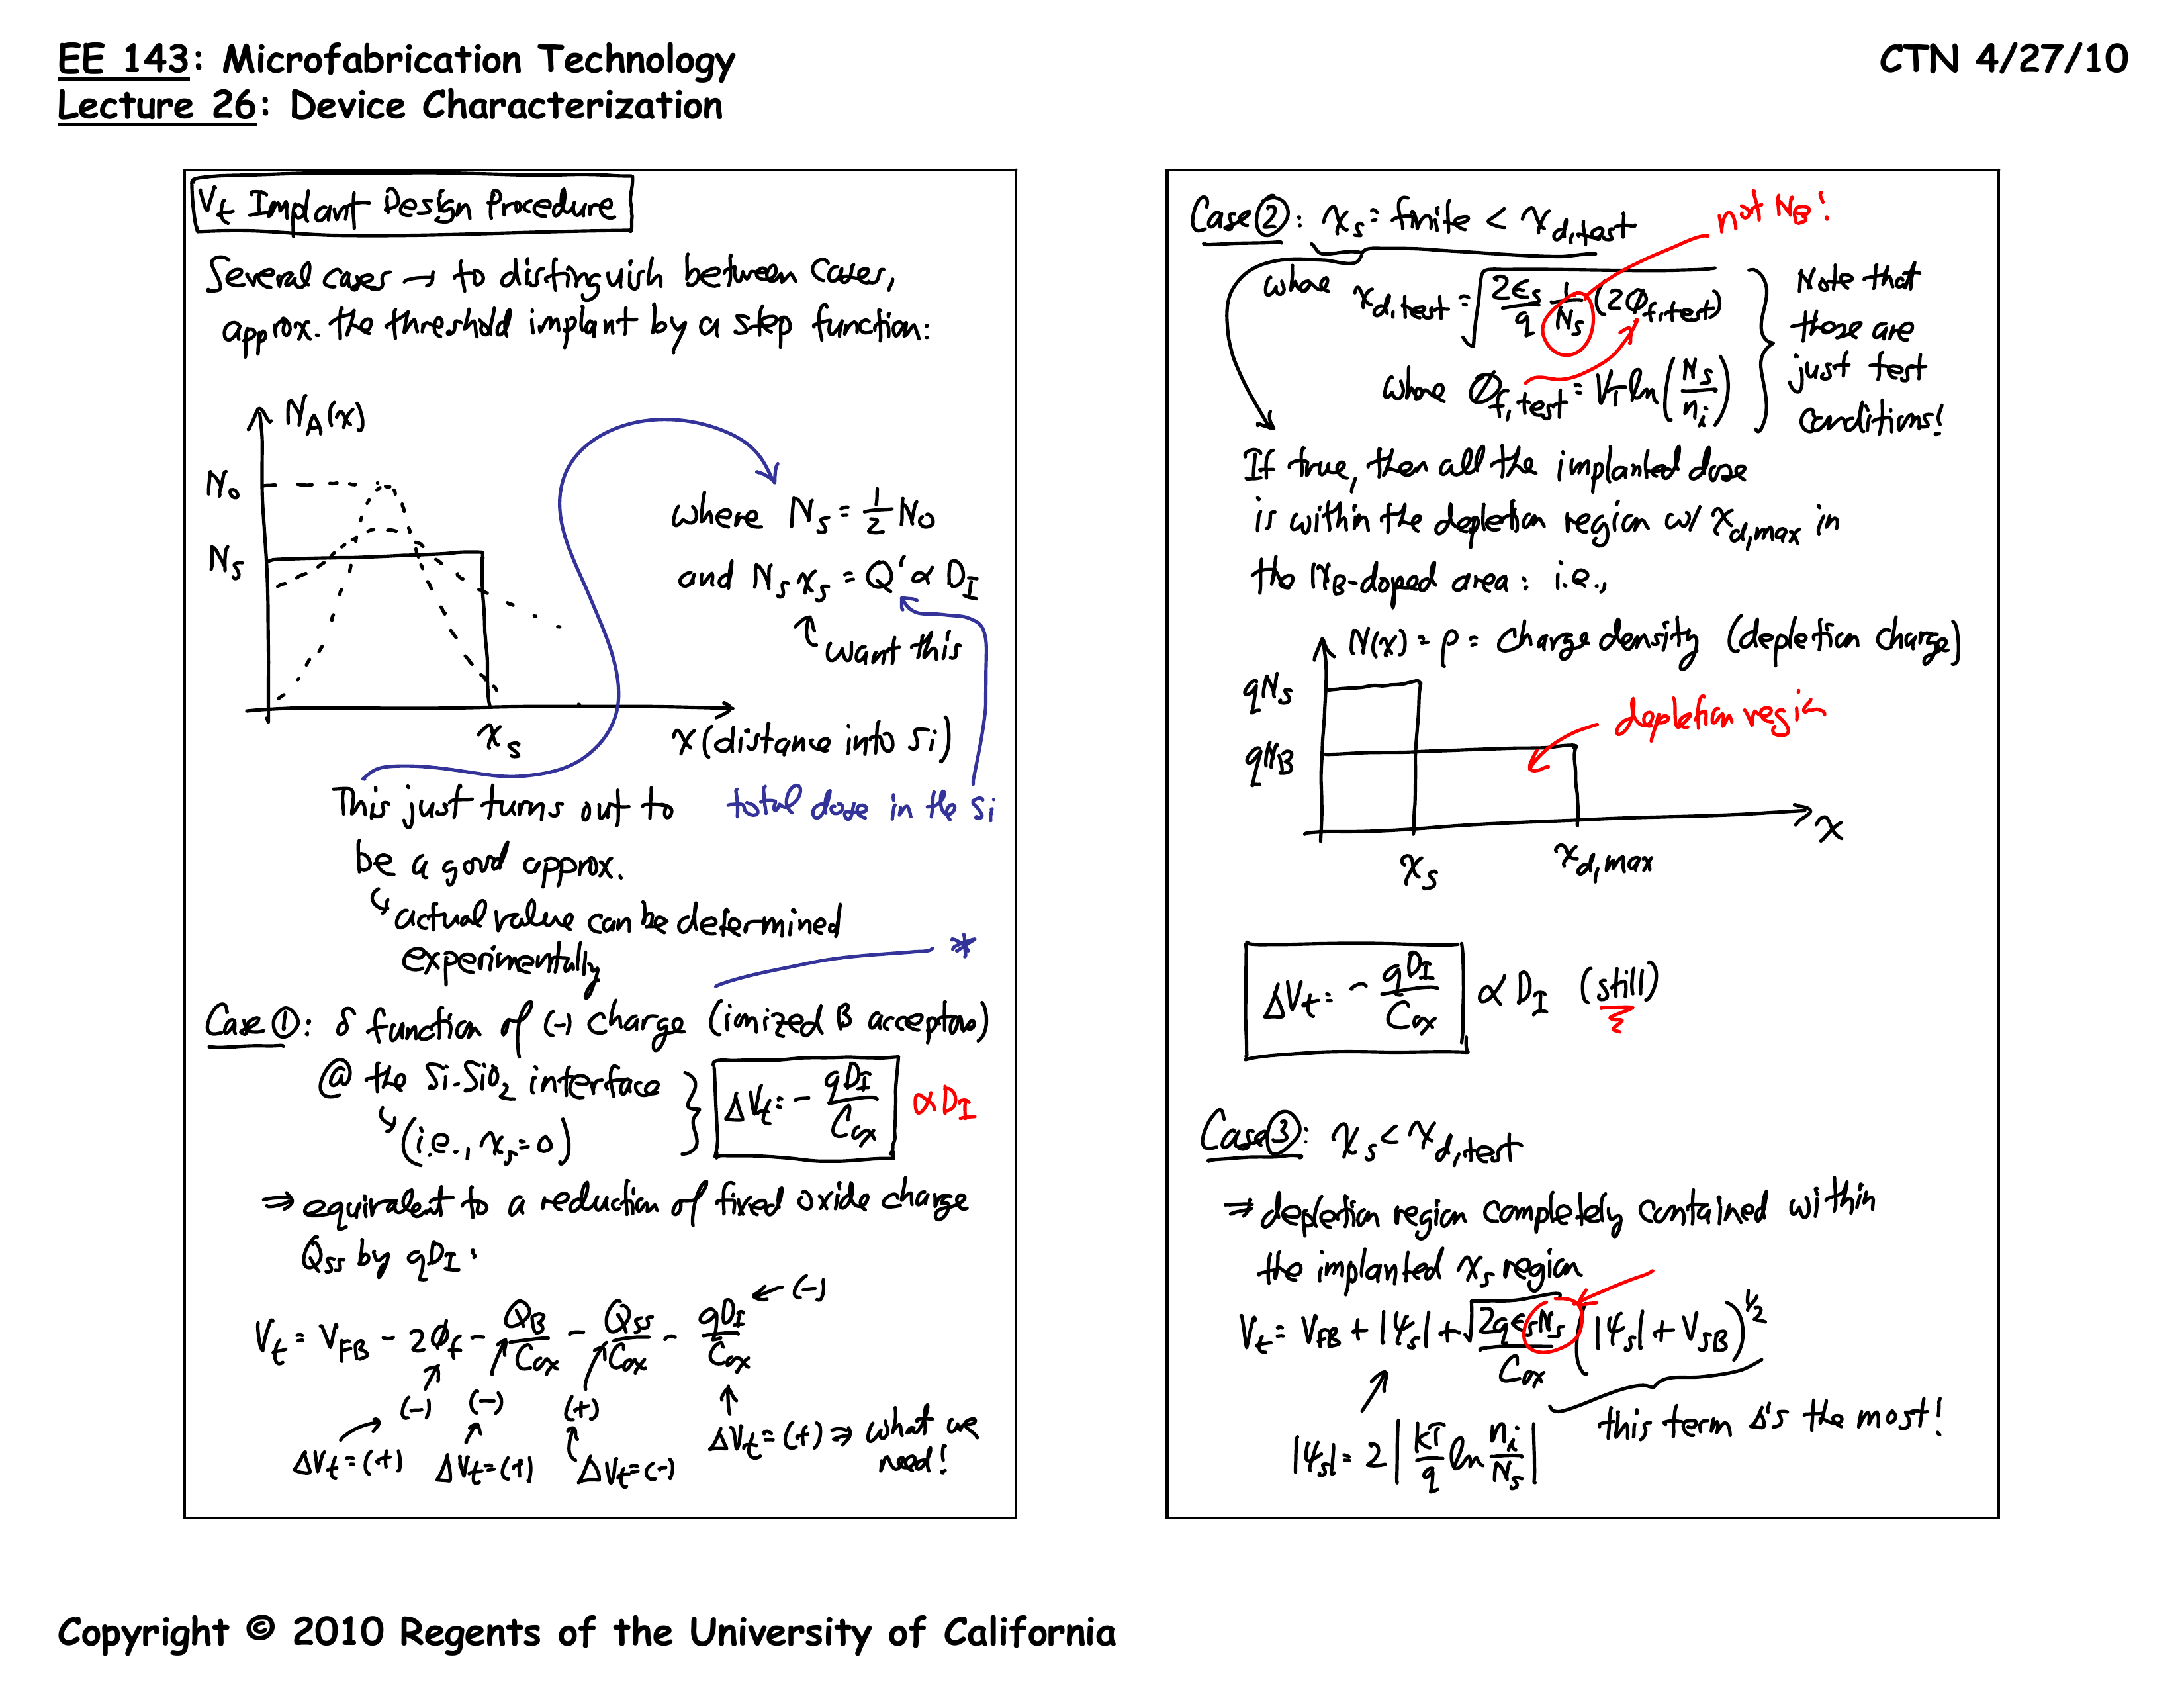 EE 143: Microfabrication Technology
CTN 4/27/10
Lecture 26: Device Characterization
Vt Implant Design Procedure
Several cases → to distinguish between cases,
approx. the threshold implant by a step function:
N_A(x)
N_o
N_s
where N_s = 1/2 N_o
and N_s x_s = Q' ∝ D_I
want this
x_s
x (distance into Si)
This just turns out to
total dose in the Si
be a good approx.
↳ actual value can be determined
experimentally
*
Case ①: δ function of (-) charge (ionized B acceptors)
@ the Si-SiO2 interface
↳ (i.e., x_s = 0)
ΔV_t = - qD_I / C_ox
∝ D_I
⇒ equivalent to a reduction of fixed oxide charge
Q_ss by qD_I:
V_t = V_FB - 2φ_f - Q_B/C_ox - Q_ss/C_ox - qD_I/C_ox ← (-)
(-) (-) (+)
ΔV_t = (+) ΔV_t = (+) ΔV_t = (-) ΔV_t = (+) ⇒ what we
need!
Case ②: x_s = finite < x_d,test
not N_B!
where x_d,test = √(2ε_s/q 1/N_s (2φ_f,test))
where φ_f,test = V_T ln(N_s/n_i)
Note that
these are
just test
conditions!
If true, then all the implanted dose
is within the depletion region w/ x_d,max in
the N_B-doped area: i.e.,
N(x) = ρ = charge density (depletion charge)
qN_s
depletion region
qN_B
x
x_s
x_d,max
ΔV_t = - qD_I / C_ox ∝ D_I (still)
Case ③: x_s < x_d,test
⇒ depletion region completely contained within
the implanted x_s region
V_t = V_FB + |ψ_s| + √(2qε_s N_s)/C_ox (|ψ_s| + V_SB)^1/2
this term Δ's the most!
|ψ_s| = 2 |kT/q ln n_i/N_s|
Copyright © 2010 Regents of the University of California